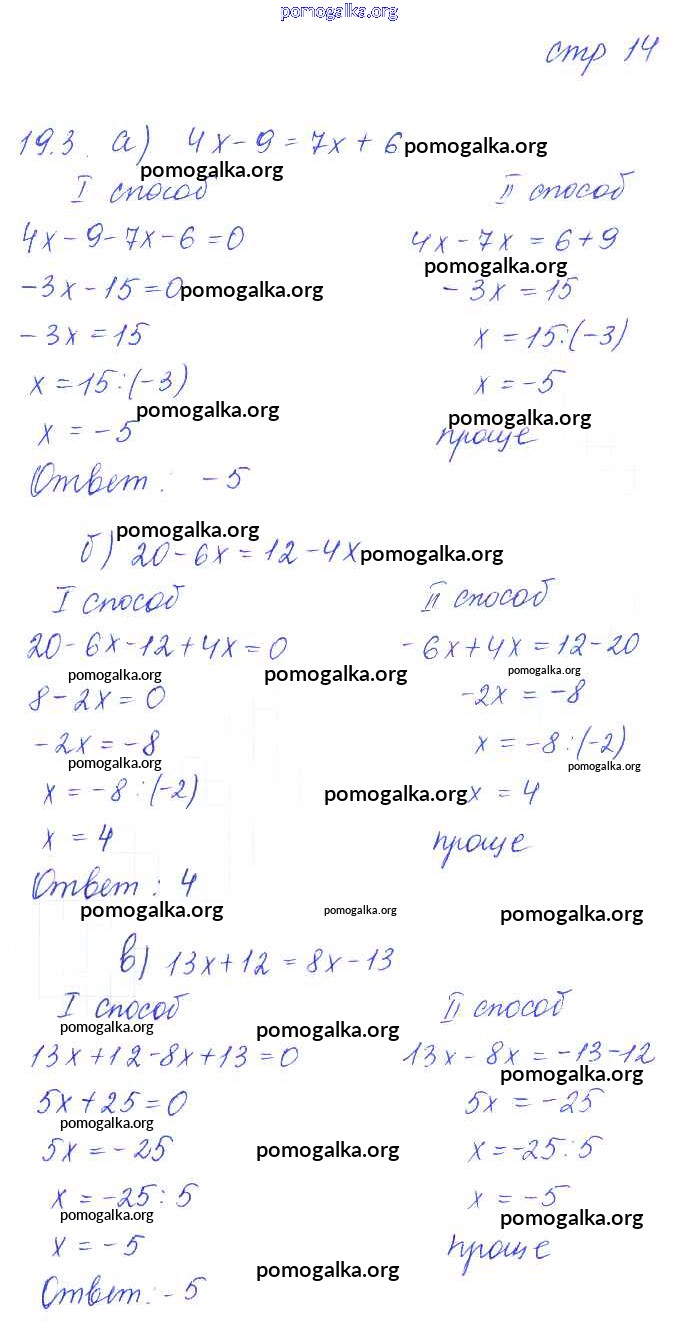 pomogalka.org
стр 14
19.3. а) 4х - 9 = 7х + 6 pomogalka.org
pomogalka.org
I способ II способ
4х - 9 - 7х - 6 = 0 4х - 7х = 6 + 9
pomogalka.org
-3х - 15 = 0 pomogalka.org -3х = 15
-3х = 15 х = 15 : (-3)
х = 15 : (-3) х = -5
pomogalka.org pomogalka.org
х = -5 проще
Ответ: -5
pomogalka.org
б) 20 - 6х = 12 - 4х pomogalka.org
I способ II способ
20 - 6х - 12 + 4х = 0 -6х + 4х = 12 - 20
pomogalka.org pomogalka.org pomogalka.org
8 - 2х = 0 -2х = -8
-2х = -8 х = -8 : (-2)
pomogalka.org pomogalka.org
х = -8 : (-2) pomogalka.org х = 4
х = 4 проще
Ответ: 4
pomogalka.org pomogalka.org pomogalka.org
в) 13х + 12 = 8х - 13
I способ II способ
pomogalka.org pomogalka.org
13х + 12 - 8х + 13 = 0 13х - 8х = -13 - 12
pomogalka.org
5х + 25 = 0 5х = -25
pomogalka.org
5х = -25 pomogalka.org х = -25 : 5
х = -25 : 5 х = -5
pomogalka.org pomogalka.org
х = -5 проще
pomogalka.org
Ответ: -5